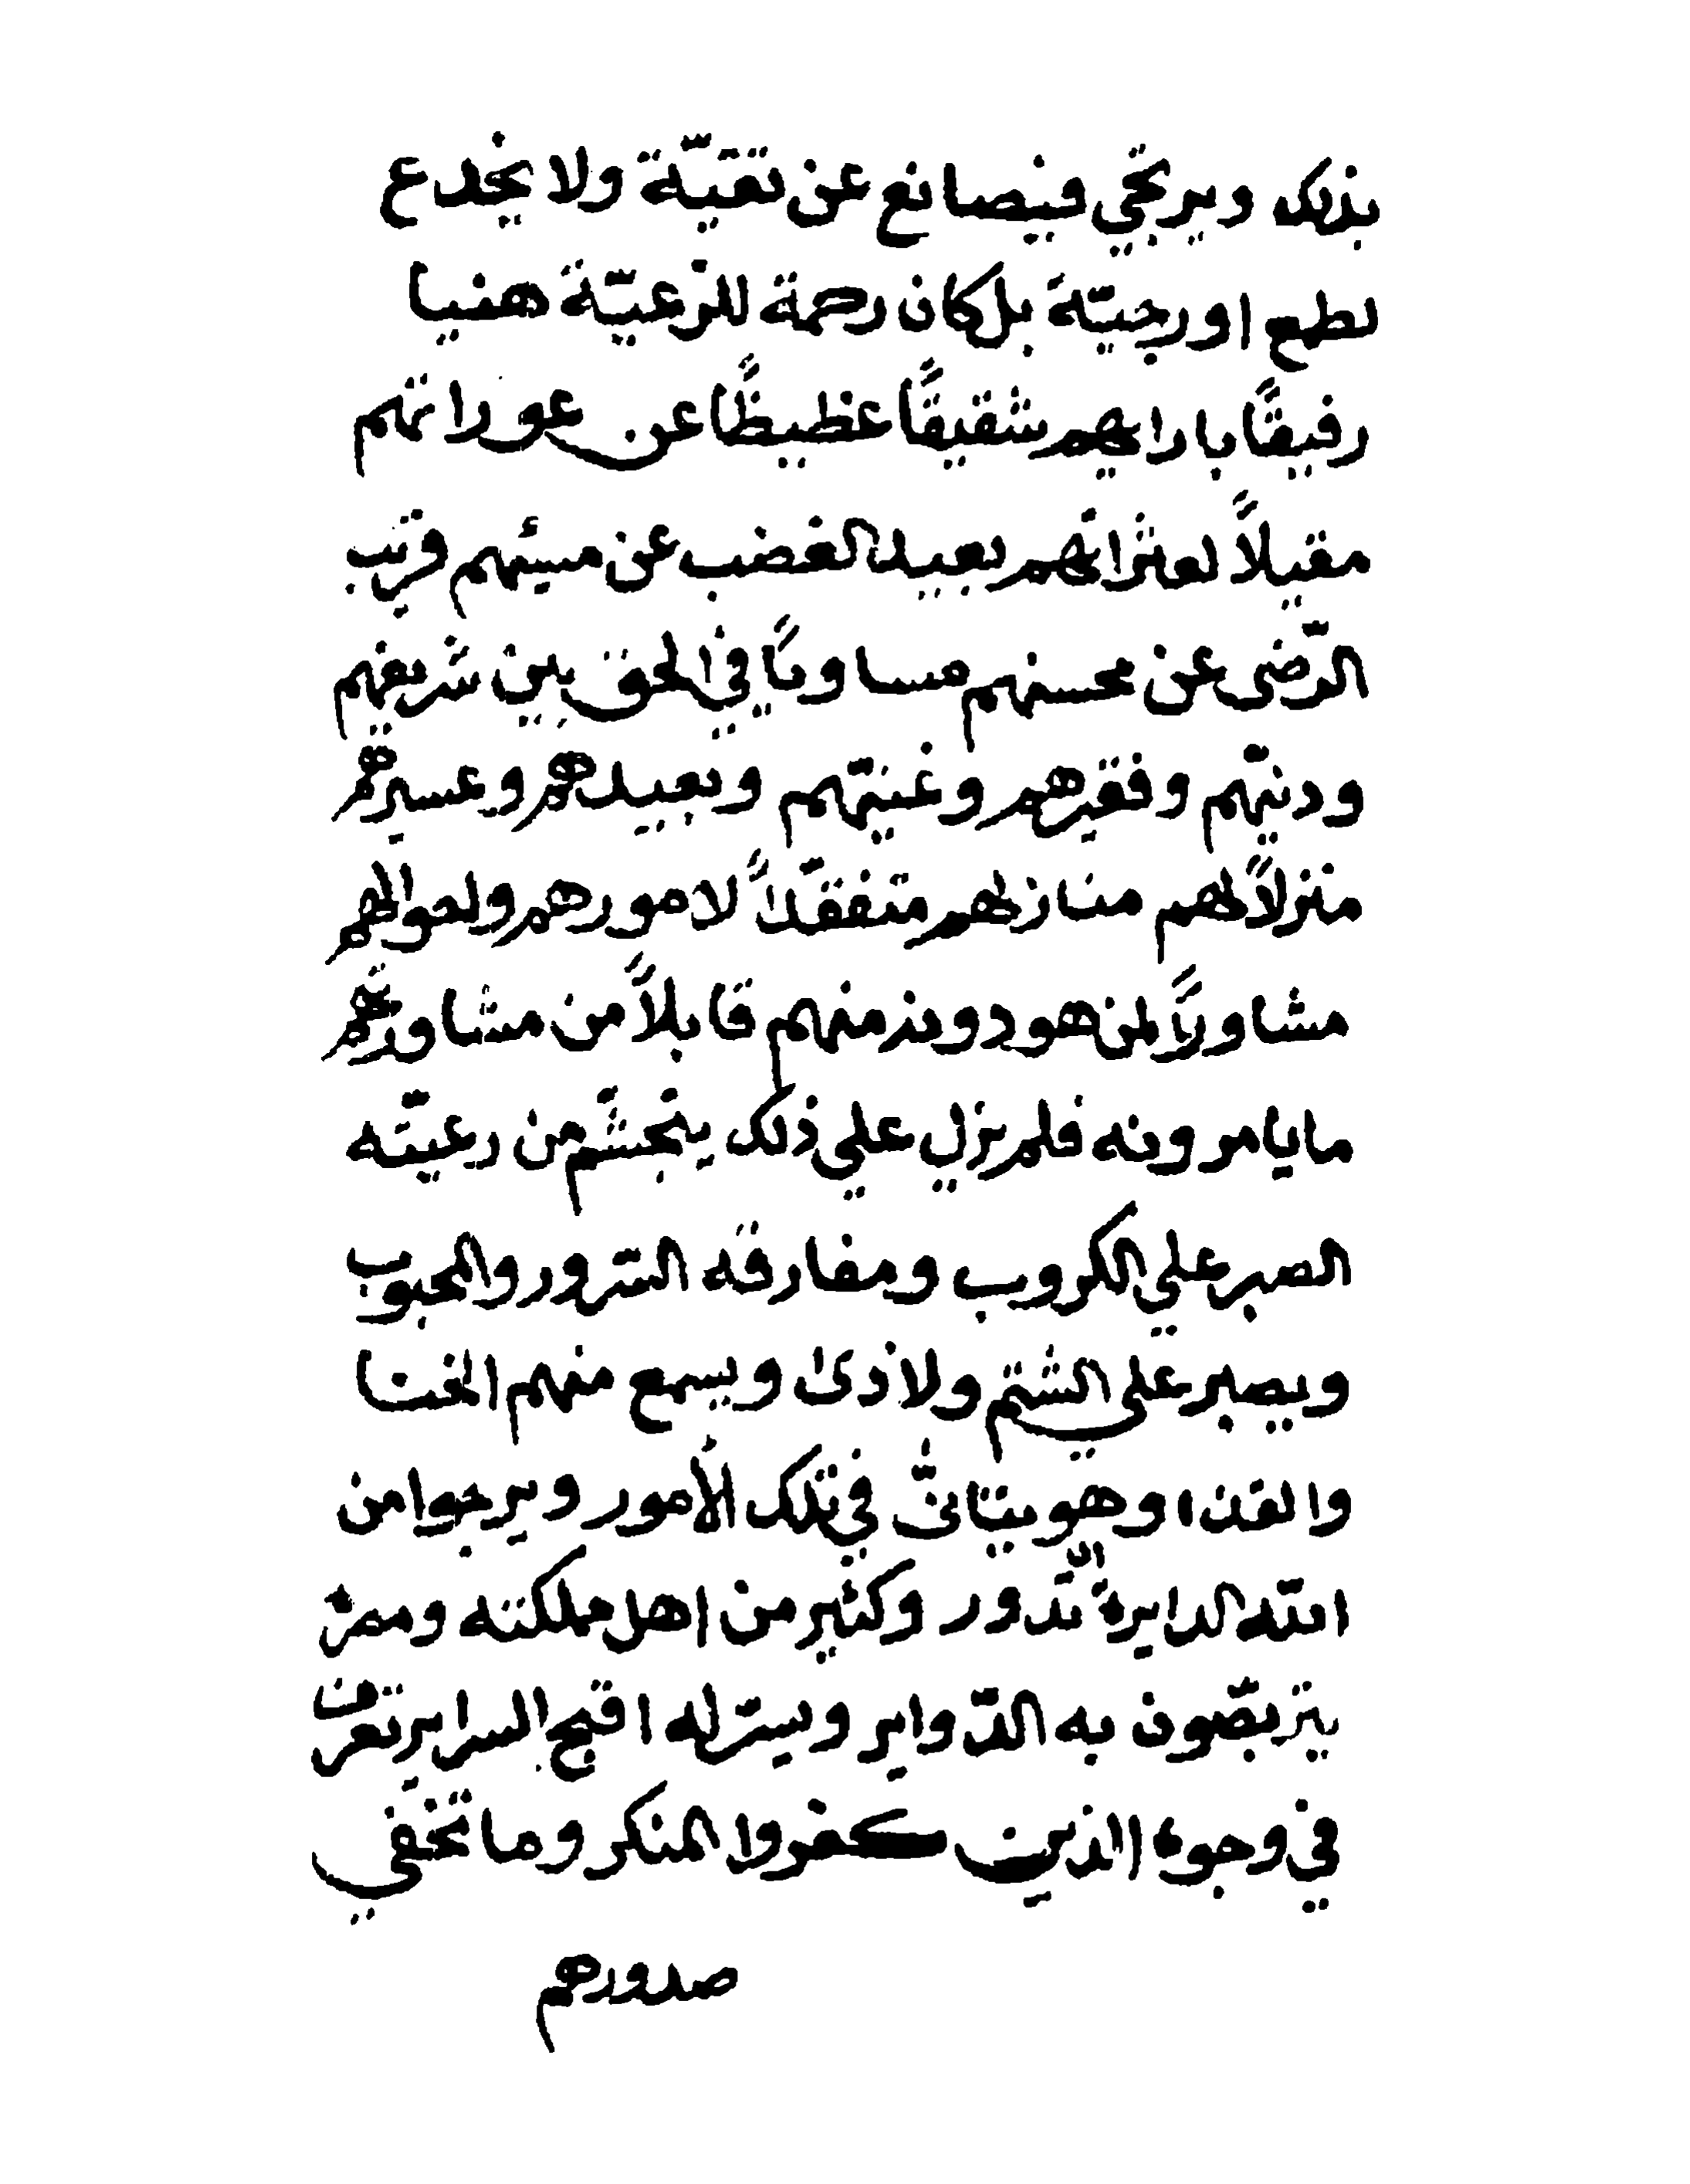 بذلك ويرتجي فيصانع عن تقيّة ولا يخدع
لطمع او رجيّة بل كان رحمة للرّعيّة هنيا
رفيقًا بارا بهم شقيقًا عظيظًا عن عوراتهم
مقيلاً لعثراتهم بعيد الغضب عن مسيئهم قريب
الرّضى عن محسنهم مساويًا في الحق بين شريفهم
ودنيّهم وفقيرهم وغنيّهم وبعيدهم وعسيرهم
منزلاً لهم منازلهم متفقّداً لامورهم ولحوالهم
مشاورًا لمن هو دونه منهم قابلاً من مشاورتهم
ما يامرونه فلم يزل علي ذلك يتجشّم من رعيّته
الصبر علي الكروب ومفارقة السّرور والمحبوب
ويصبر علي الشتم ولاذى ويسمع منهم الخنا
والقذا وهو يتانّى في تلك الأمور ويرجوا من
الله الدايرة تّدور وكثير من اهل مملكته وممن
يتربّصون به الدّواير ويسترله اقبح السراير تعرف
في وجوه الذين كفروا المنكر وما تخفي
صدورهم